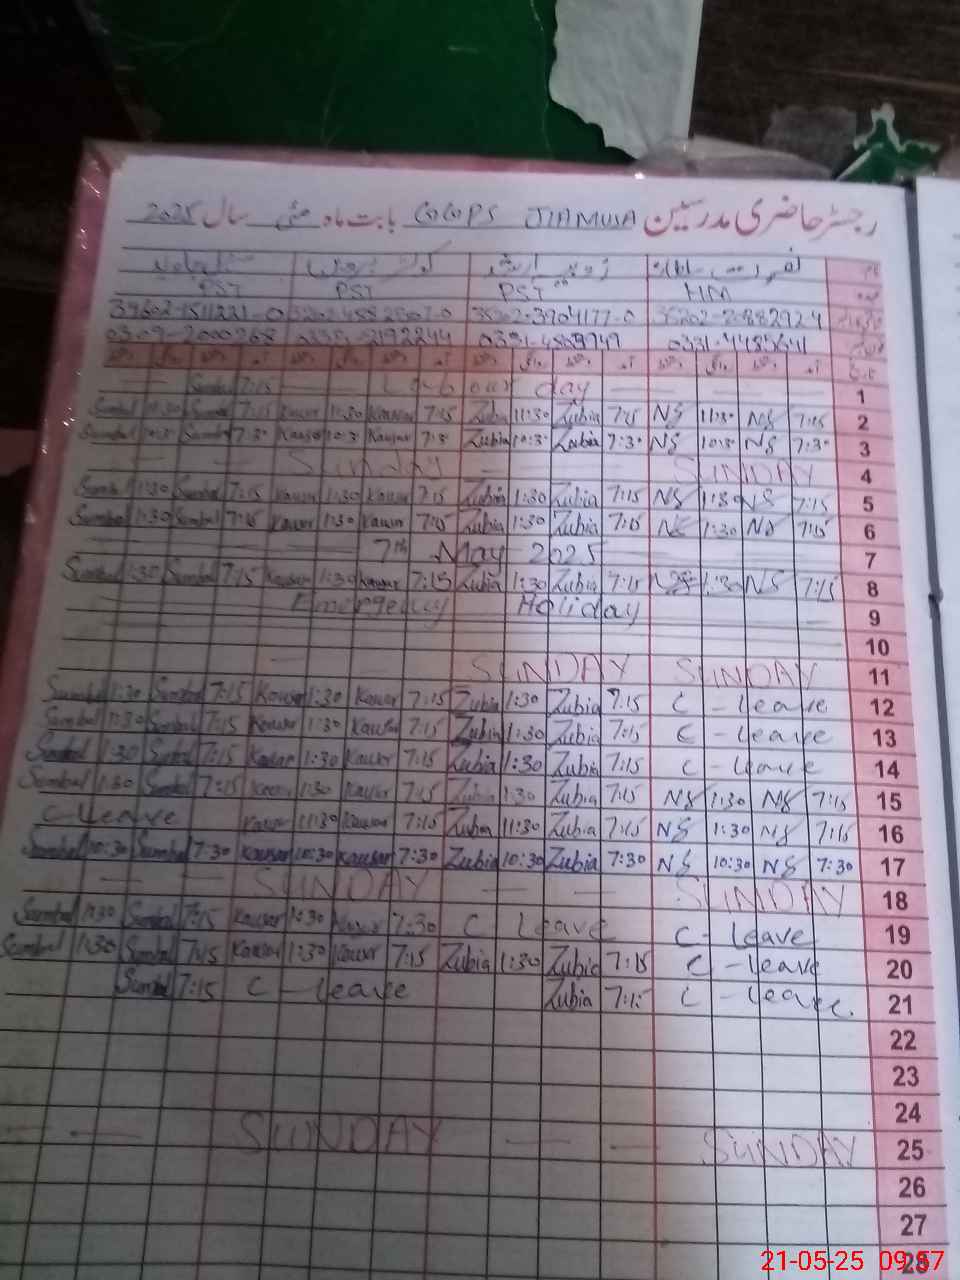 رجسٹر حاضری مدرسین GGPS JIAMUSA بابت ماہ مئی سال 2025
نام
PST PST PST HM
0331-4485641
Sumbal 7:15 Labour day 1
Sumbal 11:30 Sumbal 7:15 Kausar 11:30 Kausar 7:15 Zubia 11:30 Zubia 7:15 NS 11:30 NS 7:15 2
Sumbal 10:3 Sumbal 7:3 Kausar 10:3 Kausar 7:3 Zubia 10:3 Zubia 7:30 NS 10:3 NS 7:3 3
Sunday SUNDAY 4
Sumbal 1:30 Sumbal 7:15 Kausar 1:30 Kausar 7:15 Zubia 1:30 Zubia 7:15 NS 1:30 NS 7:15 5
Sumbal 1:30 Sumbal 7:15 Kausar 1:30 Kausar 7:15 Zubia 1:30 Zubia 7:15 NS 1:30 NS 7:15 6
7th May 2025 7
Sumbal 1:30 Sumbal 7:15 Kausar 1:30 Kausar 7:15 Zubia 1:30 Zubia 7:15 NS 1:30 NS 7:15 8
Emergency Holiday 9
10
SUNDAY SUNDAY 11
Sumbal 1:30 Sumbal 7:15 Kausar 1:30 Kausar 7:15 Zubia 1:30 Zubia 7:15 C - leave 12
Sumbal 1:30 Sumbal 7:15 Kausar 1:30 Kausar 7:15 Zubia 1:30 Zubia 7:15 C - leave 13
Sumbal 1:30 Sumbal 7:15 Kausar 1:30 Kausar 7:15 Zubia 1:30 Zubia 7:15 C - leave 14
Sumbal 1:30 Sumbal 7:15 Kausar 1:30 Kausar 7:15 Zubia 1:30 Zubia 7:15 NS 1:30 NS 7:15 15
C-leave Kausar 11:30 Kausar 7:15 Zubia 11:30 Zubia 7:15 NS 1:30 NS 7:15 16
Sumbal 10:30 Sumbal 7:30 Kausar 10:30 Kausar 7:30 Zubia 10:30 Zubia 7:30 NS 10:30 NS 7:30 17
SUNDAY SUNDAY 18
Sumbal 1:30 Sumbal 7:15 Kausar 1:30 Kausar 7:30 C leave C- leave 19
Sumbal 1:30 Sumbal 7:15 Kausar 1:30 Kausar 7:15 Zubia 1:30 Zubia 7:15 C - leave 20
Sumbal 7:15 C - leave Zubia 7:15 C - leave. 21
22
23
24
SUNDAY SUNDAY 25
26
27
28
21-05-25 09:57